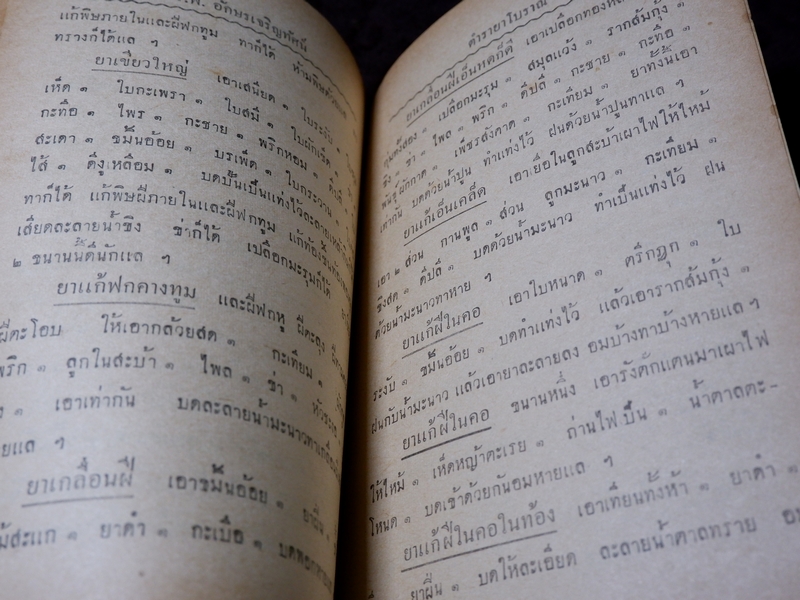 พ. อักษรเจริญทัศน์
แก้พิษภายในและผีฟกทูม ทาก็ได้
ทรางก็ได้แล ฯ
ยาเขียวใหญ่ เอาเสนียด ๑ ใบระงับ ๑
เห็ด ๑ ใบกะเพรา ๑ ใบสมี ๑ ใบผักเร็ด ๑
กะทือ ๑ ไพร ๑ กะชาย ๑ พริกหอม ๑ ดีปลี ๑
สะเดา ๑ ขมิ้นอ้อย ๑ บรเพ็ด ๑ ใบกระวาน ๑
ไส้ ๑ ดีงูเหลือม ๑ บดปั้นเป็นแท่งไว้ละลายเหล้า
ทาก็ได้ แก้พิษผีภายในและผีฟกทูม แก้ท้องขึ้นท้อง
เสียดละลายน้ำขิง ข่าก็ได้ เปลือกมะรุมก็ได้
๒ ขนานนี้ดีนักแล ฯ
ยาแก้ฟกคางทูม และผีฟกหู ผีตะลุง
ผีตะโอบ ให้เอากล้วยสด ๑ กะเทียม ๑
พริก ๑ ลูกในสะบ้า ๑ ไพล ๑ ข่า ๑ หัวระ
๑ เอาเท่ากัน บดละลายน้ำมะนาวทาเกลื่อน
ยแล ฯ
ยาเกลื่อนฝี เอาขมิ้นอ้อย ๑ ยาฝิ่น ๑
ม้สะแก ๑ ยาดำ ๑ กะเบือ ๑ บดพอก
ตำรายาโบราณ
ยาเกลื่อนฝีเอ็นหดก็ดี เอาเปลือกทองหลาง
กุมตังสอง ๑ เปลือกมะรุม ๑ สมุลแว้ง ๑ รากส้มกุ้ง ๑
ขิง ๑ ข่า ๑ ไพล ๑ พริก ๑ ดีปลี ๑ กะชาย ๑ กะทือ ๑
พันธุ์ผักกาด ๑ เพ็ชรสังคาด ๑ กะเทียม ๑ ยาทั้งนี้เอา
เท่ากัน บดด้วยน้ำปูน ทำแท่งไว้ ฝนด้วยน้ำปูนทาแล ฯ
ยาแก้เอ็นเคล็ด เอาเยื่อในลูกสะบ้าเผาไฟให้ไหม้
เอา ๒ ส่วน กานพูล ๑ ส่วน ลูกมะนาว ๑ กะเทียม ๑
ขิงสด ๑ ดีปลี ๑ บดด้วยน้ำมะนาว ทำเป็นแท่งไว้ ฝน
ด้วยน้ำมะนาวทาหาย ฯ
ยาแก้ฝีในคอ เอาใบหนาด ๑ ตรีกฏุก ๑ ใบ
ระงับ ๑ ขมิ้นอ้อย ๑ บดทำแท่งไว้ แล้วเอารากส้มกุ้ง ๑
ฝนกับน้ำมะนาว แล้วเอายาละลายลง อมบ้างทาบ้างหายแล ฯ
ยาแก้ฝีในคอ ขนานหนึ่ง เอารังตั๊กแตนมาเผาไฟ
ให้ไหม้ ๑ เห็ดหญ้าตะเรย ๑ ถ่านไฟปิ้น ๑ น้ำตาลตะ-
โหนด ๑ บดเข้าด้วยกันอมหายแล ฯ
ยาแก้ฝีในคอในท้อง เอาเทียนทั้งห้า ๑ ยาดำ ๑
ยาฝิ่น ๑ บดให้ละเอียด ละลายน้ำตาลทราย